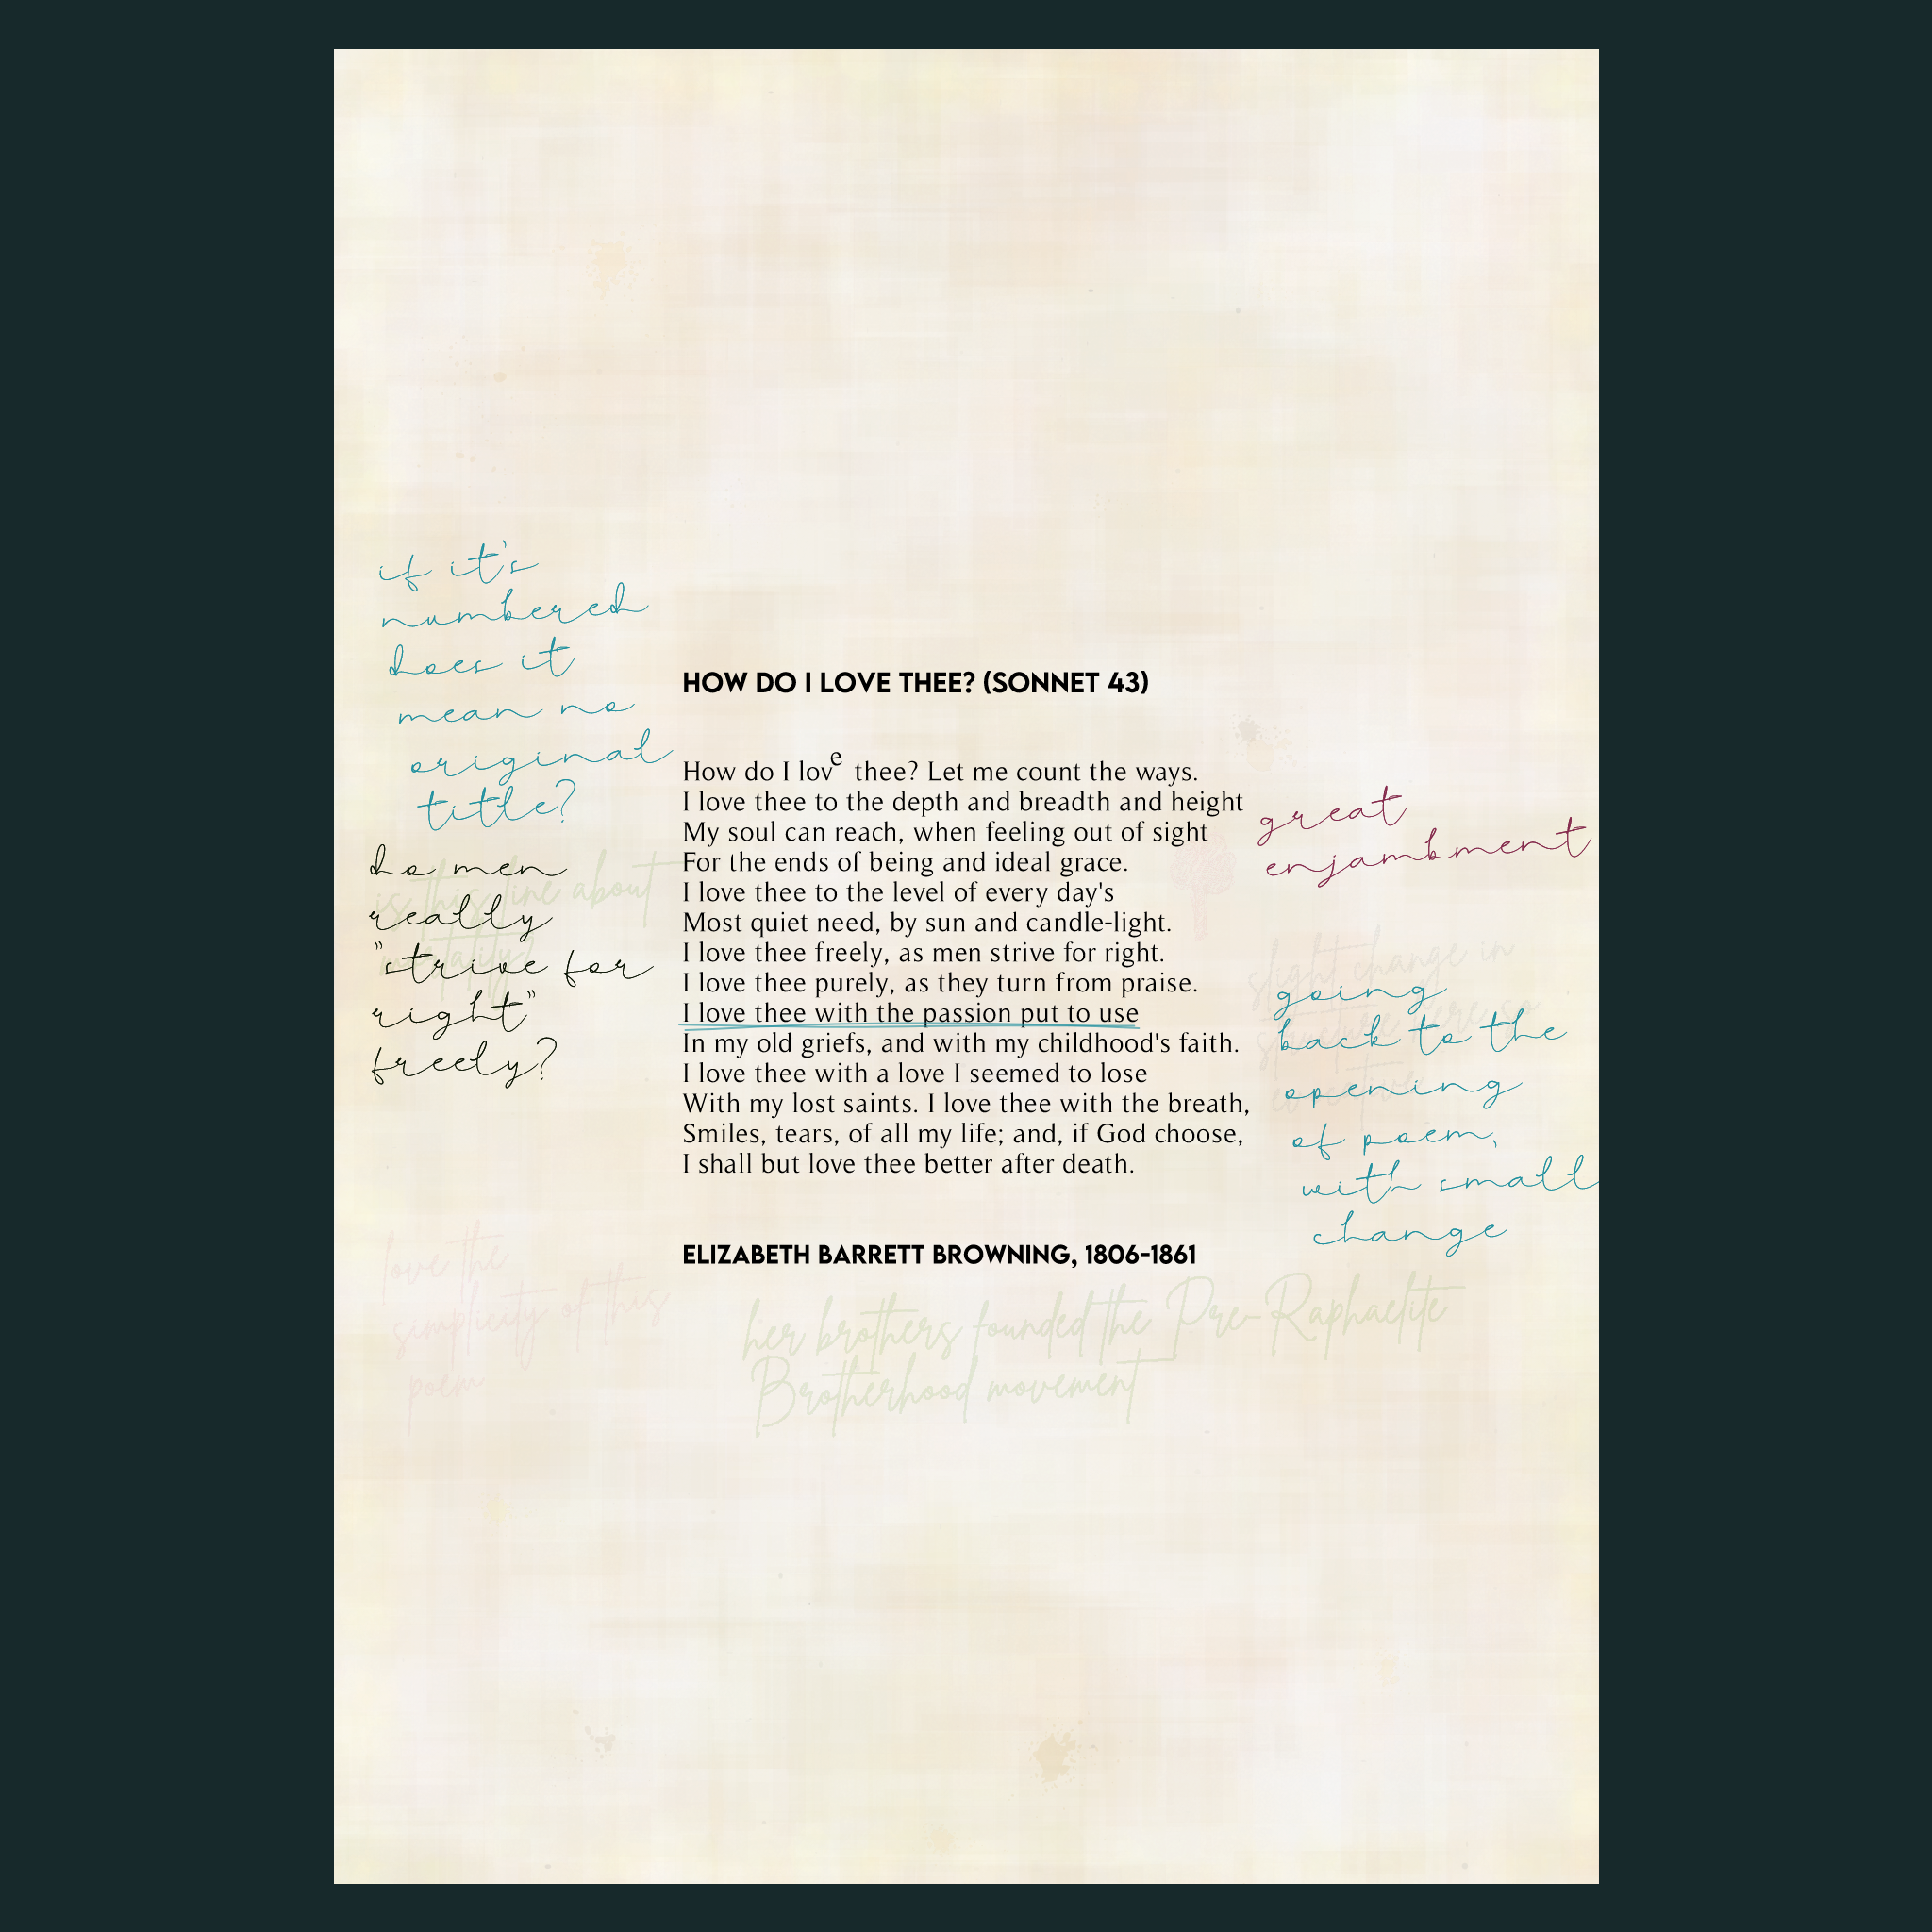 if it's
numbered
does it
mean no
original
title?
do men
really
"strive for
right"
freely?
is this line about
HOW DO I LOVE THEE? (SONNET 43)
How do I love thee? Let me count the ways.
I love thee to the depth and breadth and height
My soul can reach, when feeling out of sight
For the ends of being and ideal grace.
I love thee to the level of every day's
Most quiet need, by sun and candle-light.
I love thee freely, as men strive for right.
I love thee purely, as they turn from praise.
I love thee with the passion put to use
In my old griefs, and with my childhood's faith.
I love thee with a love I seemed to lose
With my lost saints. I love thee with the breath,
Smiles, tears, of all my life; and, if God choose,
I shall but love thee better after death.
ELIZABETH BARRETT BROWNING, 1806-1861
great
enjambment
slight change in
going
back to the
opening
of poem,
with small
change
love the
simplicity of this
poem
her brothers founded the Pre-Raphaelite
Brotherhood movement